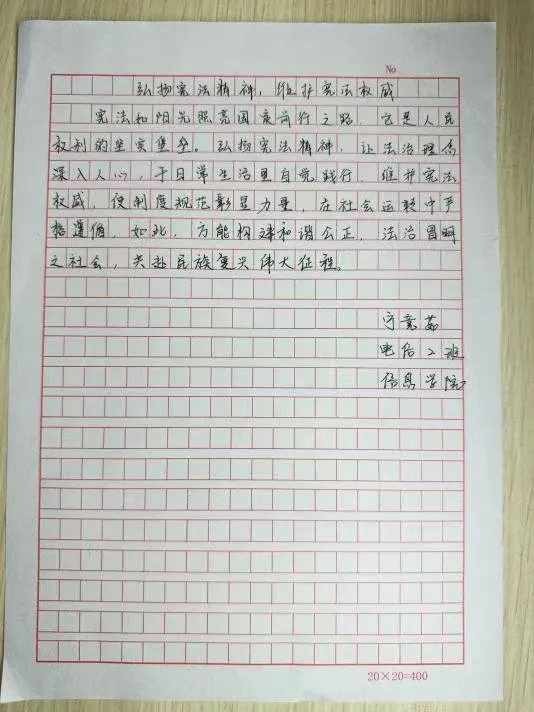 No
弘扬宪法精神，维护宪法权威
宪法如阳光照亮国家前行之路，它是人民
权利的坚实堡垒。弘扬宪法精神，让法治理念
深入人心，于日常生活里自觉践行，维护宪法
权威，使制度规范彰显力量，在社会运转中严
格遵循，如此，方能构建和谐公正，法治昌明
之社会，共赴民族复兴伟大征程。
电信2班
信息学院
20×20=400